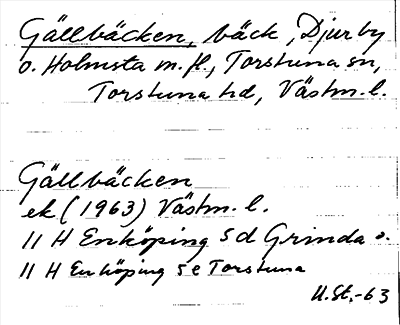 Gällbäcken, bäck, Djurby
o. Holmsta m.fl., Torstuna sn,
Torstuna hd, Västm.l.
Gällbäcken
ek (1963) Västm.l.
11 H Enköping 5 d Grinda o.
11 H Enköping 5 e Torstuna
U.St.-63